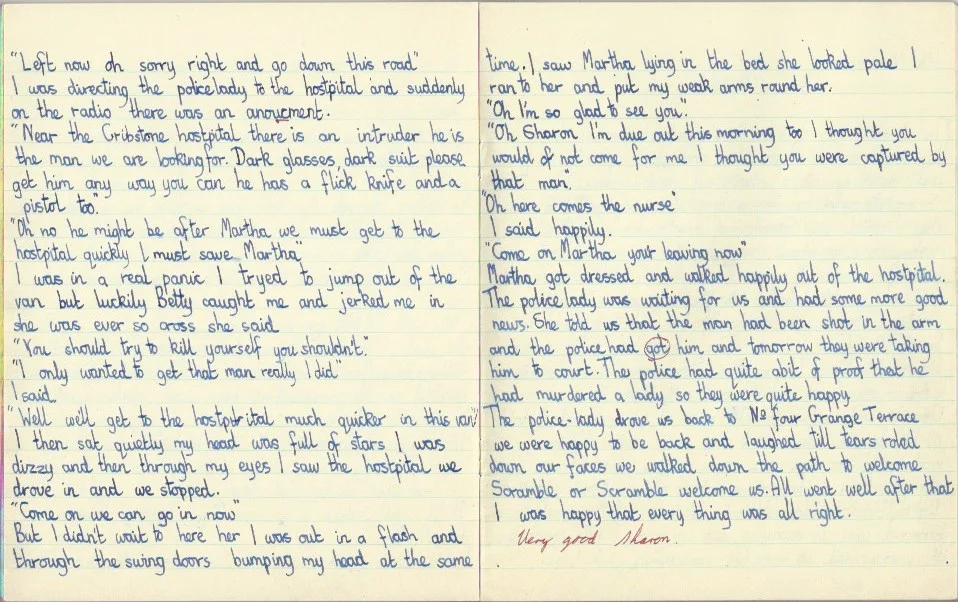 "Left now oh sorry right and go down this road"
I was directing the policelady to the hostpital and suddenly
on the radio there was an anoucment.
"Near the Cribstone hostpital there is an intruder he is
the man we are lookingfor. Dark glasses, dark suit please
get him any way you can he has a flick knife and a
pistol too".
"Oh no he might be after Martha we must get to the
hostpital quickly I must save Martha"
I was in a real panic I tryed to jump out of the
van but luckily Betty caught me and jerked me in
she was ever so cross she said
"You should try to kill yourself you shouldn't."
"I only wanted to get that man really I did"
I said.
"Well will get to the hostpital much quicker in this van"
I then sat quietly my head was full of stars I was
dizzy and then through my eyes I saw the hostpital we
drove in and we stopped.
"Come on we can go in now"
But I didn't wait to here her I was out in a flash and
through the swing doors bumping my head at the same
time. I saw Martha lying in the bed she looked pale I
ran to her and put my weak arms round her.
"Oh I'm so glad to see you".
"Oh Sharon I'm due out this morning too I thought you
would of not come for me I thought you were captured by
that man".
"Oh here comes the nurse"
I said happily.
"Come on Martha your leaving now"
Martha got dressed and walked happily out of the hostpital.
The police lady was waiting for us and had some more good
news. She told us that the man had been shot in the arm
and the police had got him and tomorrow they were taking
him to court. The police had quite abit of proof that he
had murdered a lady so they were quite happy.
The police-lady drove us back to No four Grange Terrace
we were happy to be back and laughed till tears roled
down our faces we walked down the path to welcome
Scramble or Scramble welcome us. All went well after that
I was happy that every thing was all right.
Very good Sharon.